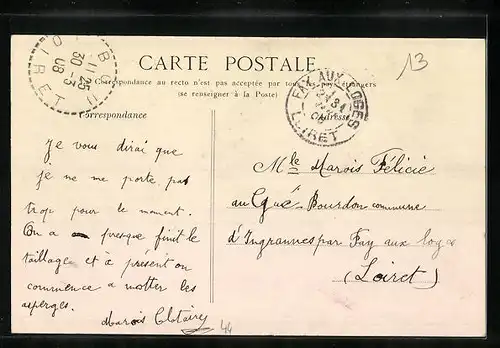 CARTE POSTALE
13
La Correspondance au recto n'est pas acceptée par tous les pays étrangers
(se renseigner à la Poste)
11 25
30 -3
08
FAY AUX LOGES
LOIRET
Correspondance
Adresse
Je vous dirai que
je ne me porte pas
trop pour le moment.
On a presque finit le
taillage et à présent on
commence a motter les
asperges.
Marois Clotaire
44
Mlle Marois Félicie
au Gué Bourdon commune
d'Ingrannes par Fay aux loges
(Loiret)